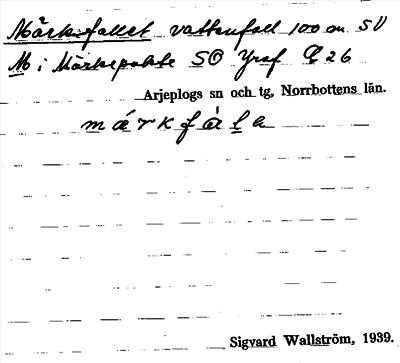 Märkfallet vattenfall 100 m SV
M i Märkepakte SO Yraf 26
Arjeplogs sn och tg, Norrbottens län.
márkfála
Sigvard Wallström, 1939.